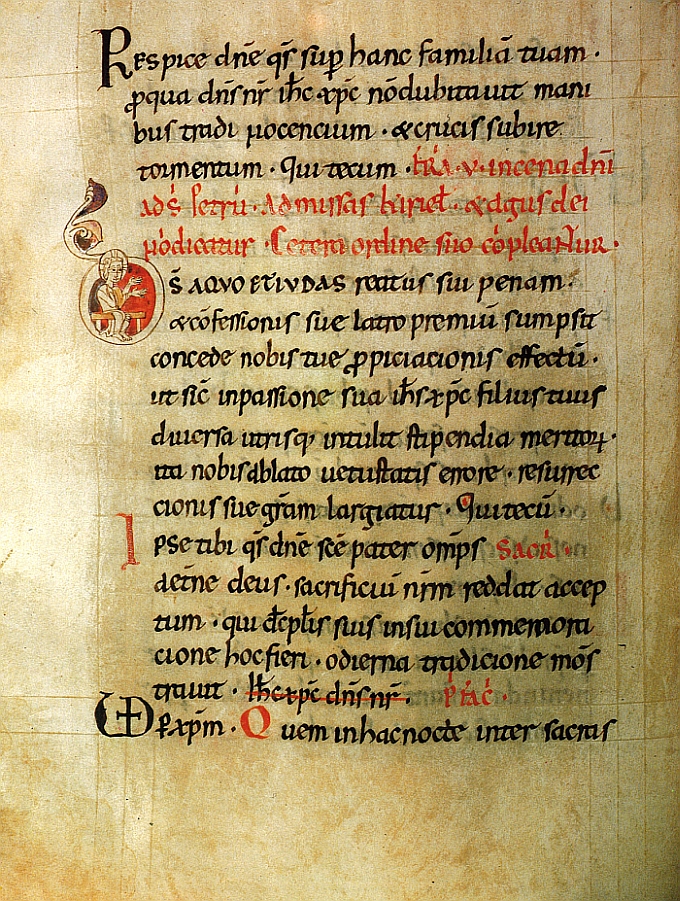 Respice dñe qs̄ sup hanc familiā tuam ·
ꝓqua dñsnr̄ ih̄c xp̄c nōdubitauit mani
bus tradi nocencium · &crucis subire
tormentum · Qui tecum · F̄RA · v · incena dnī
ads̄ Petrū · Admissas &agus dei
n̄odicatur · Cetera ordine suo cōpleantur ·
D̄S AQVO ETIVDAS reatus sui penam ·
&cōfessionis sue latro premiū sumpsit
concede nobis tue ꝓpiciacionis effectū ·
ut sic̄ inpassione sua ih̄s xp̄c filius tuus
diuersa utrisq; intulit stipendia meritoꝝ ·
ita nobis ablato uetustatis errore · resurrec
cionis sue grām largiatur · Qui tecū ·
Ipse tibi qs̄ dñe scē pater omp̄s SACR̄ ·
aetñe deus · sacrificiū nr̄m reddat accep
tum · qui disciplis suis insui commemora
cione hoc fieri · odierna tradicione mōs
trauit · Ih̄c xp̄c dñs nr̄ · P̄fac̄ ·
VD P xp̄m · Quem inhacnocte inter sacras